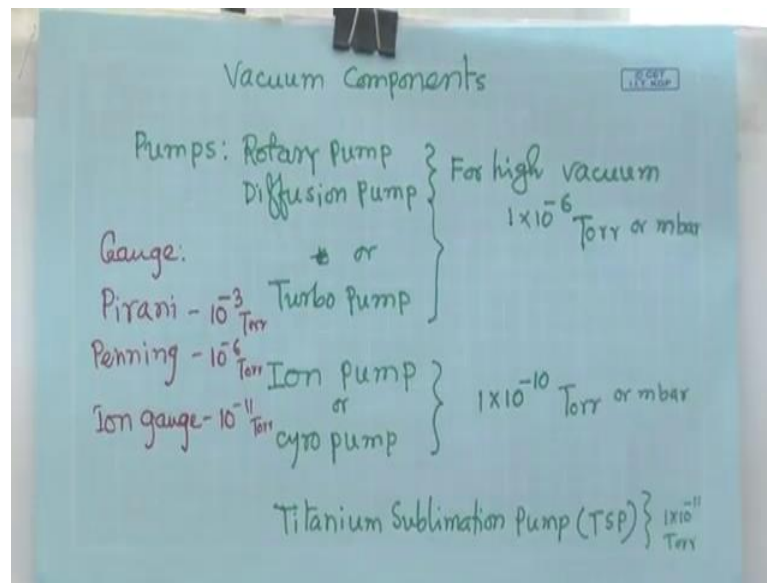 Vacuum Components
© CET
I.I.T. KGP
Pumps: Rotary Pump
Diffusion Pump
or
Turbo Pump
For high vacuum
1×10⁻⁶ Torr or mbar
Gauge:
Pirani - 10⁻³ Torr
Penning - 10⁻⁶ Torr
Ion gauge - 10⁻¹¹ Torr
Ion Pump
or
cyro pump
1×10⁻¹⁰ Torr or mbar
Titanium Sublimation Pump (TSP) } 1×10⁻¹¹
Torr